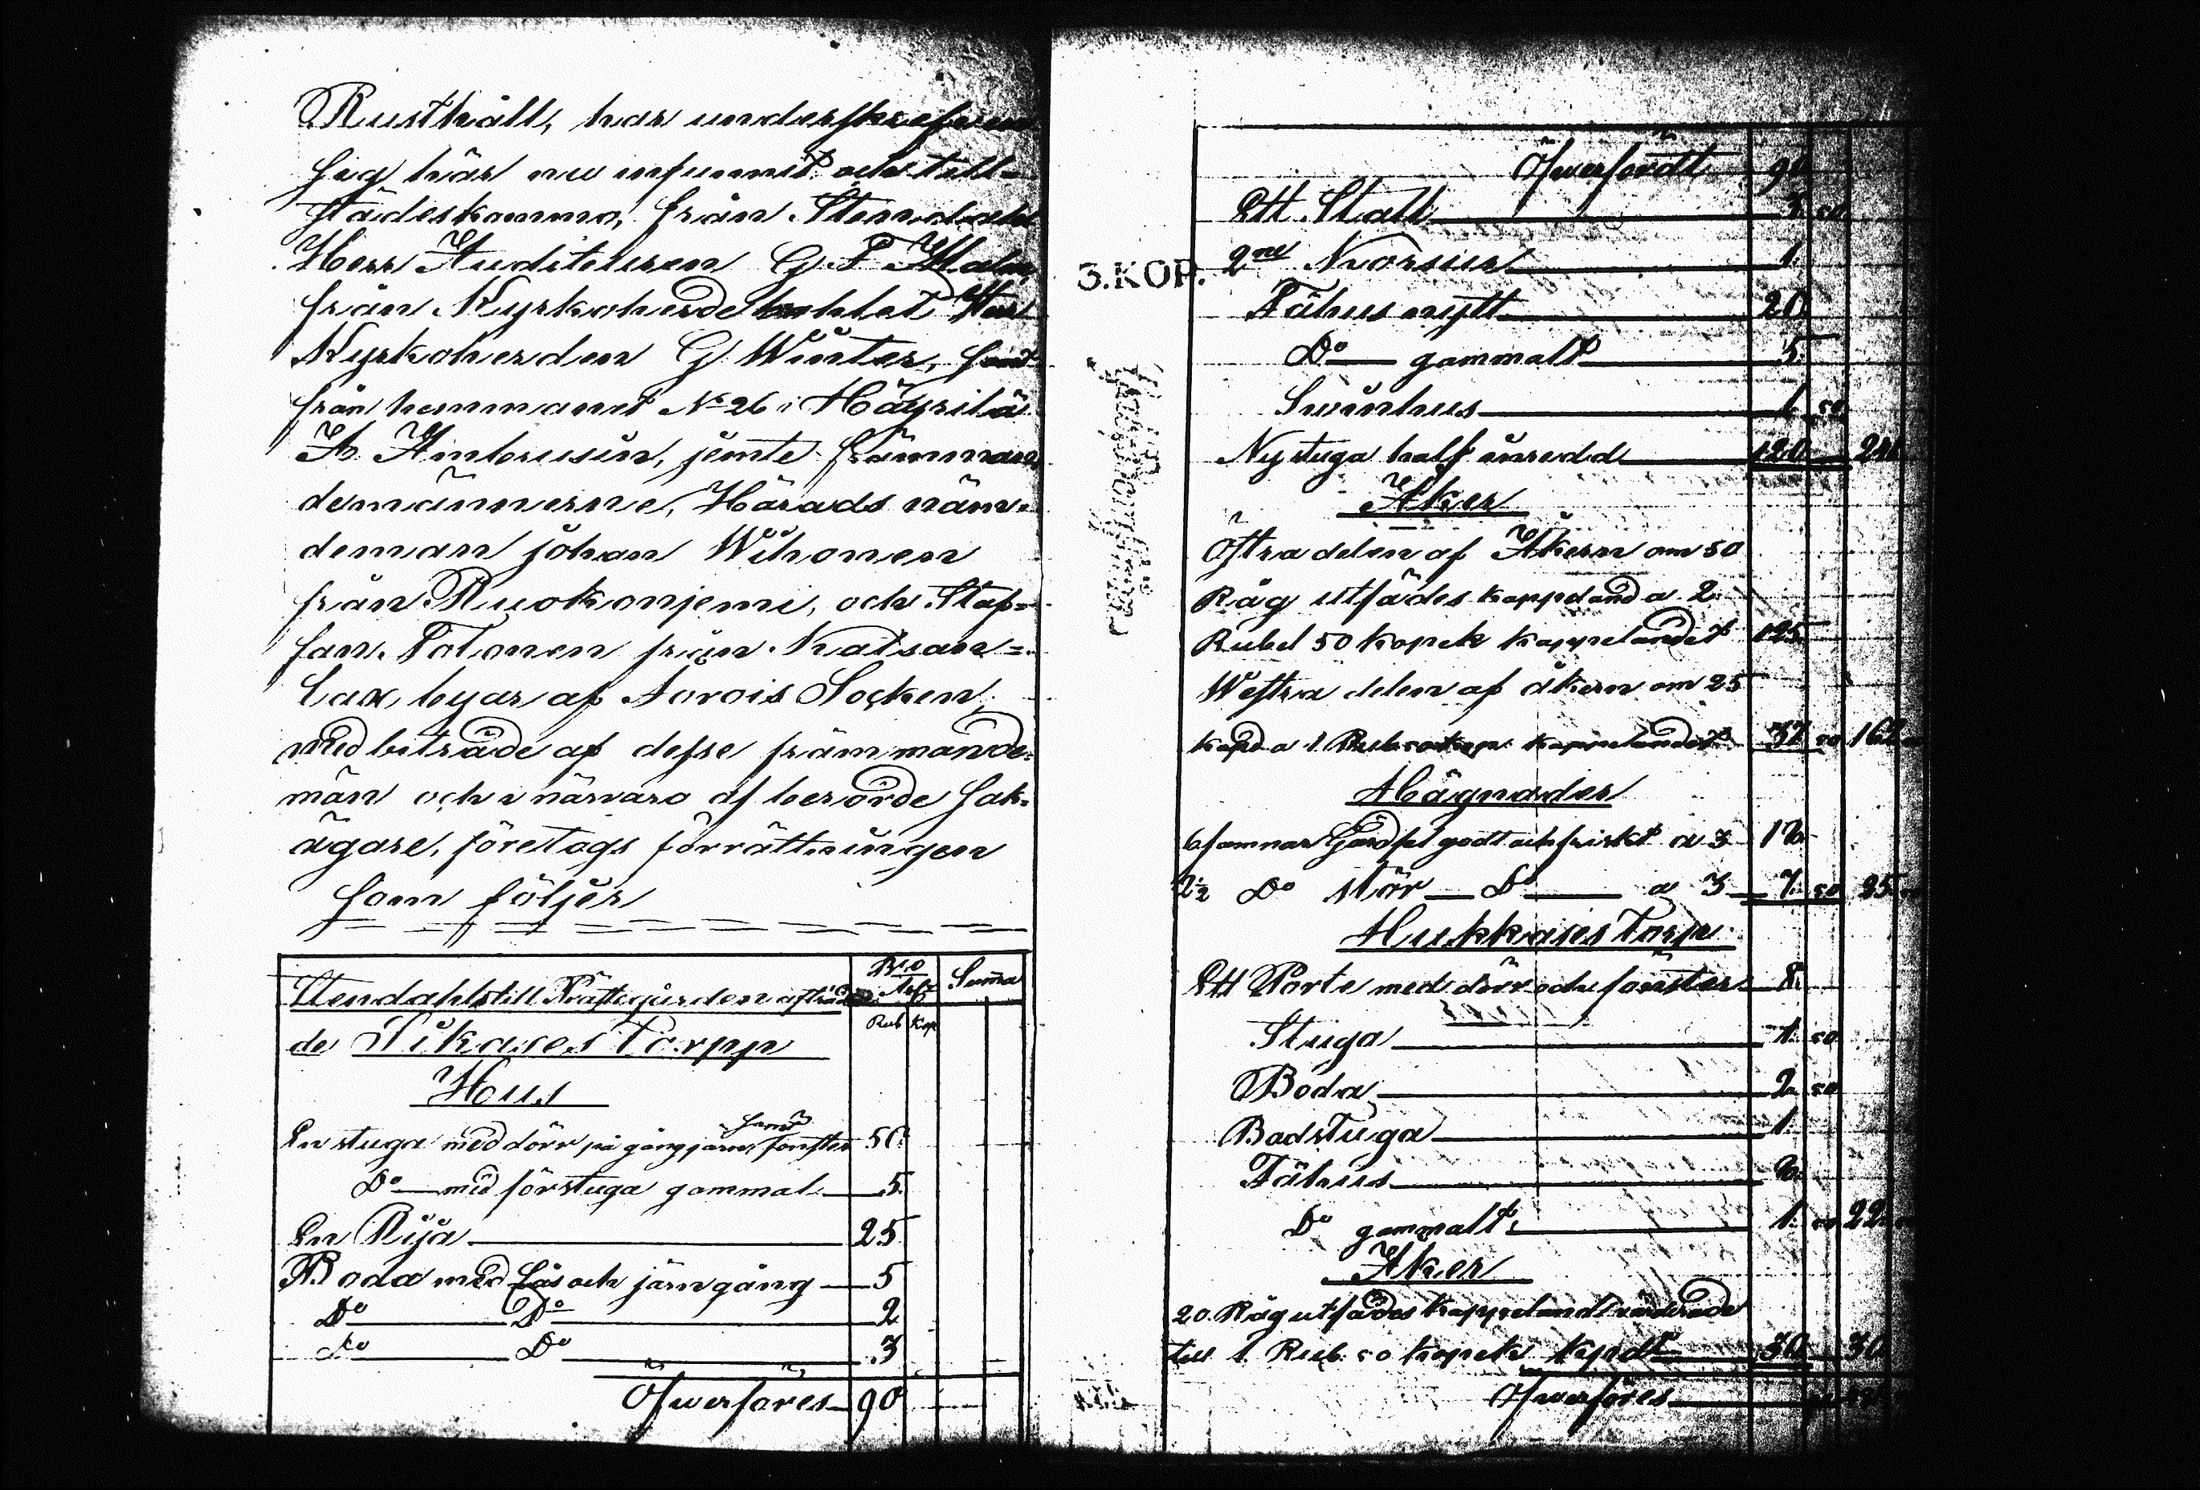 Rusthåll, har underskrefven
sig här nu infunnit och till-
städeskomma, från Stendahl
Herr Auditeuren G. F.
från Kyrkoherde bohlet Herr
Kyrkoherden G. Winter, samt
från hemmanet No 26 i Häyrilä
A. Ambrusin, jemte främman
demännerne, Härads näm-
deman Johan Wihonen
från Ruokonjemi, och Staf-
fan Tolonen från Katsan-
lax, byar af Jorois Socken,
med biträde af desse främmande
män och i närvaro af berörde sak-
ägare, företogs förrättningen
som följer
Stendahls till Prästegården afträd
de Pikases Torpp
Rub Kop
Summa
Hus
En stuga med dörr på gångjärn samt fönster 50
Do med förstuga gammal 5
En Rija 25
Boda med Lås och järngång 5
Do Do 2
Do Do 3
Öfwerföres 90
3.KOP.
Öfwerfördt 90
Ett Stall 3 50
2ne Kvarnar 1
Fähus nytt 20
Do gammalt 5
Swinhus 1 50
Ny stuga half inredd 120 241
Åker
Östra delen af Åkern om 50
Råg utsädes kappeland a 2
Rubel 50 kopek kappelandet 125
Westra delen af åkern om 25
kapd a 1 Rub 50 kop kappelandet 37 50 162
Hägnader
6 famnar Gärdsel godt och friskt a 3 18
2½ Do Stör Do a 3 7 50 25
Mukkases Torp
Ett Pörte med dörr och fönster 8
Stuga 1 50
Boda 2 50
Badstuga 1
Fähus
Do gammalt 1 50 22
Åker
20 Råg utsädes kappeland värderade
till 1 Rub 50 kopek kapdt 30 30
Öfwerföres